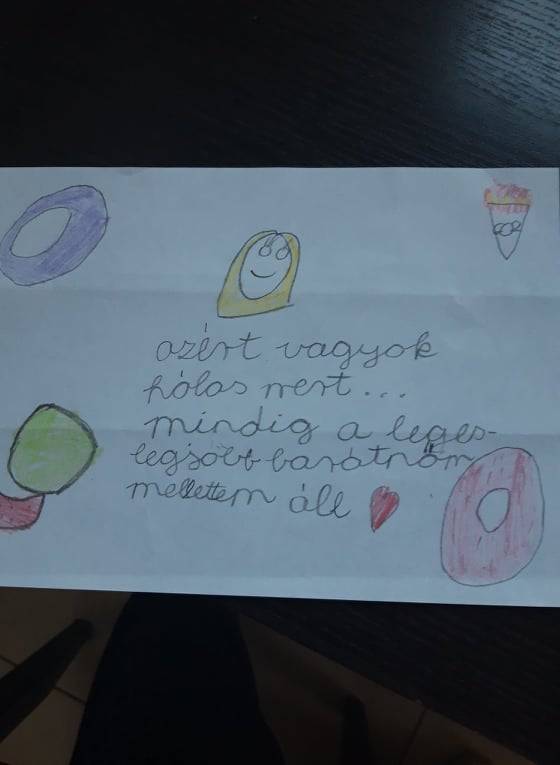 azért vagyok
hálas mert...
mindig a leges-
legjobb barátnőm
mellettem áll